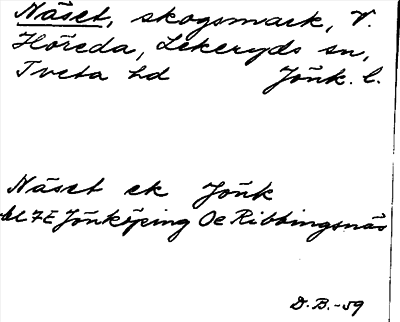 Näset, skogsmark, V.
Höreda, Lekeryds sn,
Tveta hd Jönk. l.
Näset ek Jönk
bl 7E Jönköping Oe Ribbingsnäs
D.B.-59